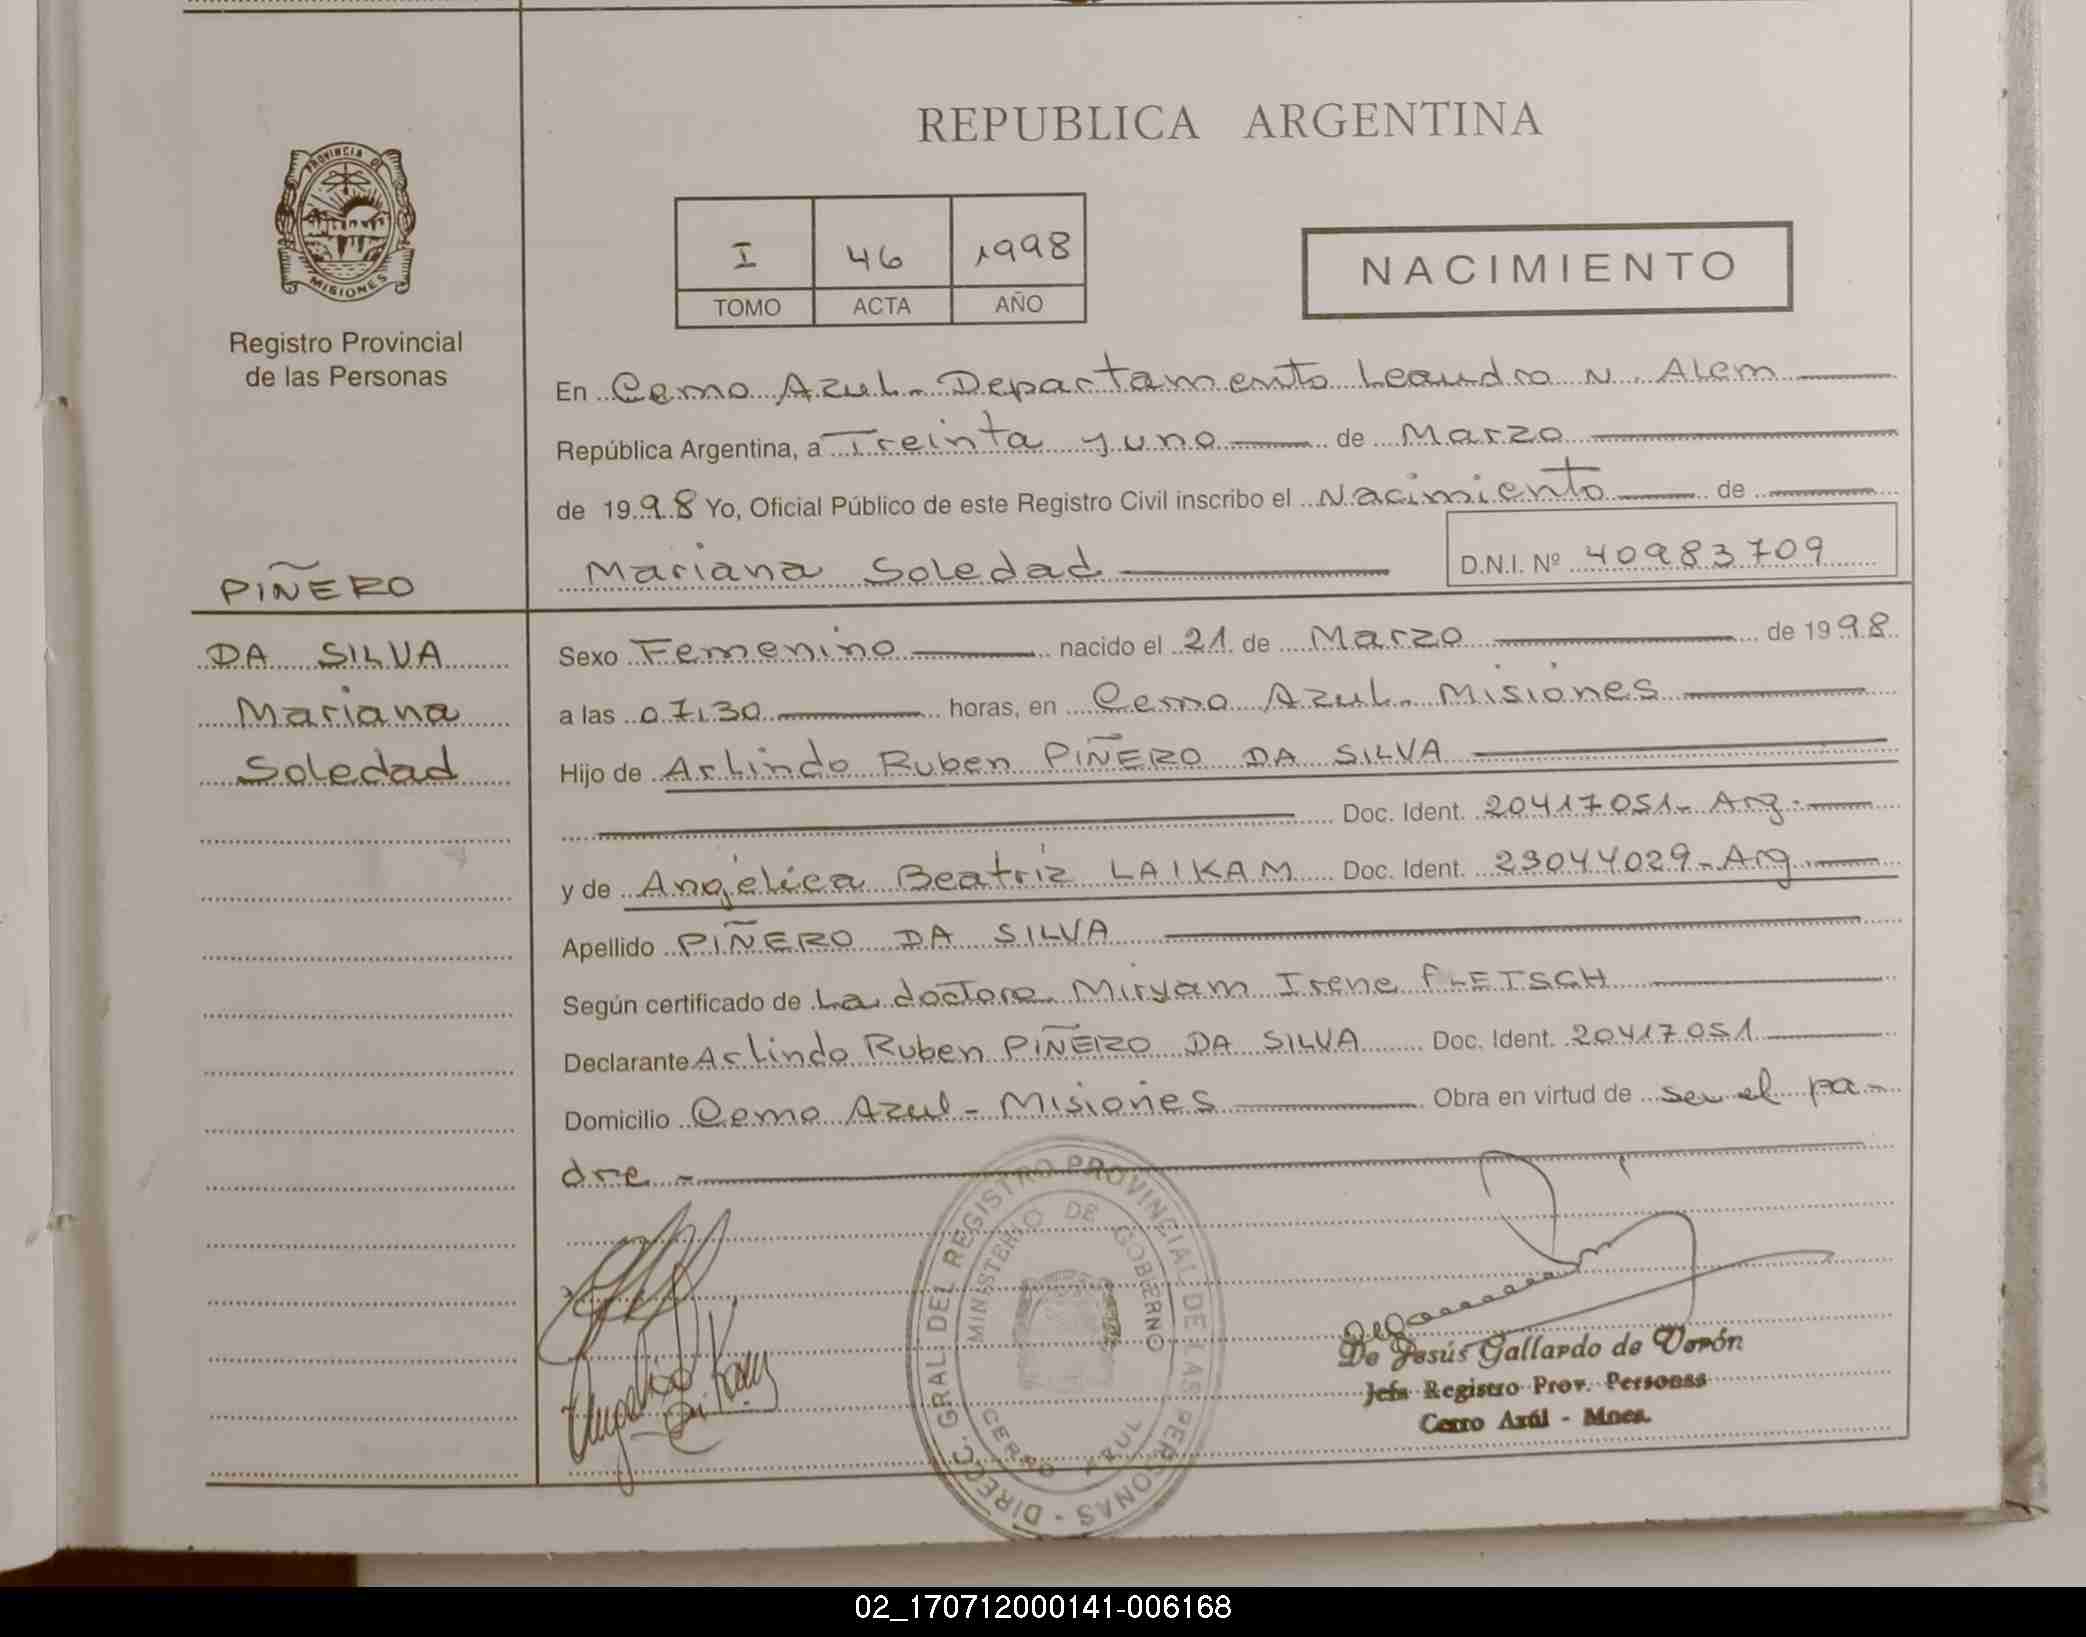 REPUBLICA ARGENTINA
PROVINCIA DE MISIONES
Registro Provincial
de las Personas
I 46 1998
TOMO ACTA AÑO
NACIMIENTO
En Cerro Azul - Departamento Leandro N. Alem
República Argentina, a Treinta y uno de Marzo
de 1998 Yo, Oficial Público de este Registro Civil inscribo el Nacimiento de
Mariana Soledad D.N.I. Nº 40983709
PIÑERO
DA SILVA
Mariana
Soledad
Sexo Femenino nacido el 21 de Marzo de 1998
a las 07,30 horas, en Cerro Azul - Misiones
Hijo de Arlindo Ruben PIÑERO DA SILVA
Doc. Ident. 20417051 - Arg.
y de Angélica Beatriz LAIKAM Doc. Ident. 23044029 - Arg.
Apellido PIÑERO DA SILVA
Según certificado de La doctora Miryam Irene FLEITSCH
Declarante Arlindo Ruben PIÑERO DA SILVA Doc. Ident. 20417051
Domicilio Cerro Azul - Misiones Obra en virtud de ser el pa-
dre -
DIRECC. GRAL DEL REGISTRO PROVINCIAL DE LAS PERSONAS -
MINISTERIO DE GOBIERNO
CERRO AZUL
De Jesús Gallardo de Verón
Jefa Registro Prov. Personas
Cerro Azúl - Mnes.
02_170712000141-006168